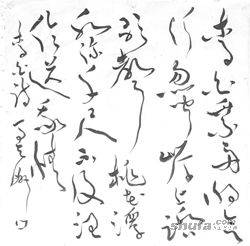 李白乘舟将欲
行忽闻岸上踏
歌声 桃花潭
水深千尺不及汪
伦送我情
李白诗
shufa.com